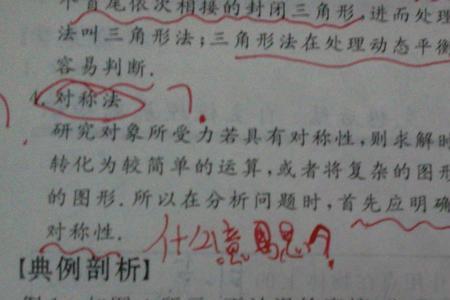 个首尾依次相接的封闭三角形,进而处理
法叫三角形法;三角形法在处理动态平衡
容易判断.
4.对称法
研究对象所受力若具有对称性,则求解时
转化为较简单的运算,或者将复杂的图形
的图形.所以在分析问题时,首先应明确
对称性.
什么意思?
【典例剖析】